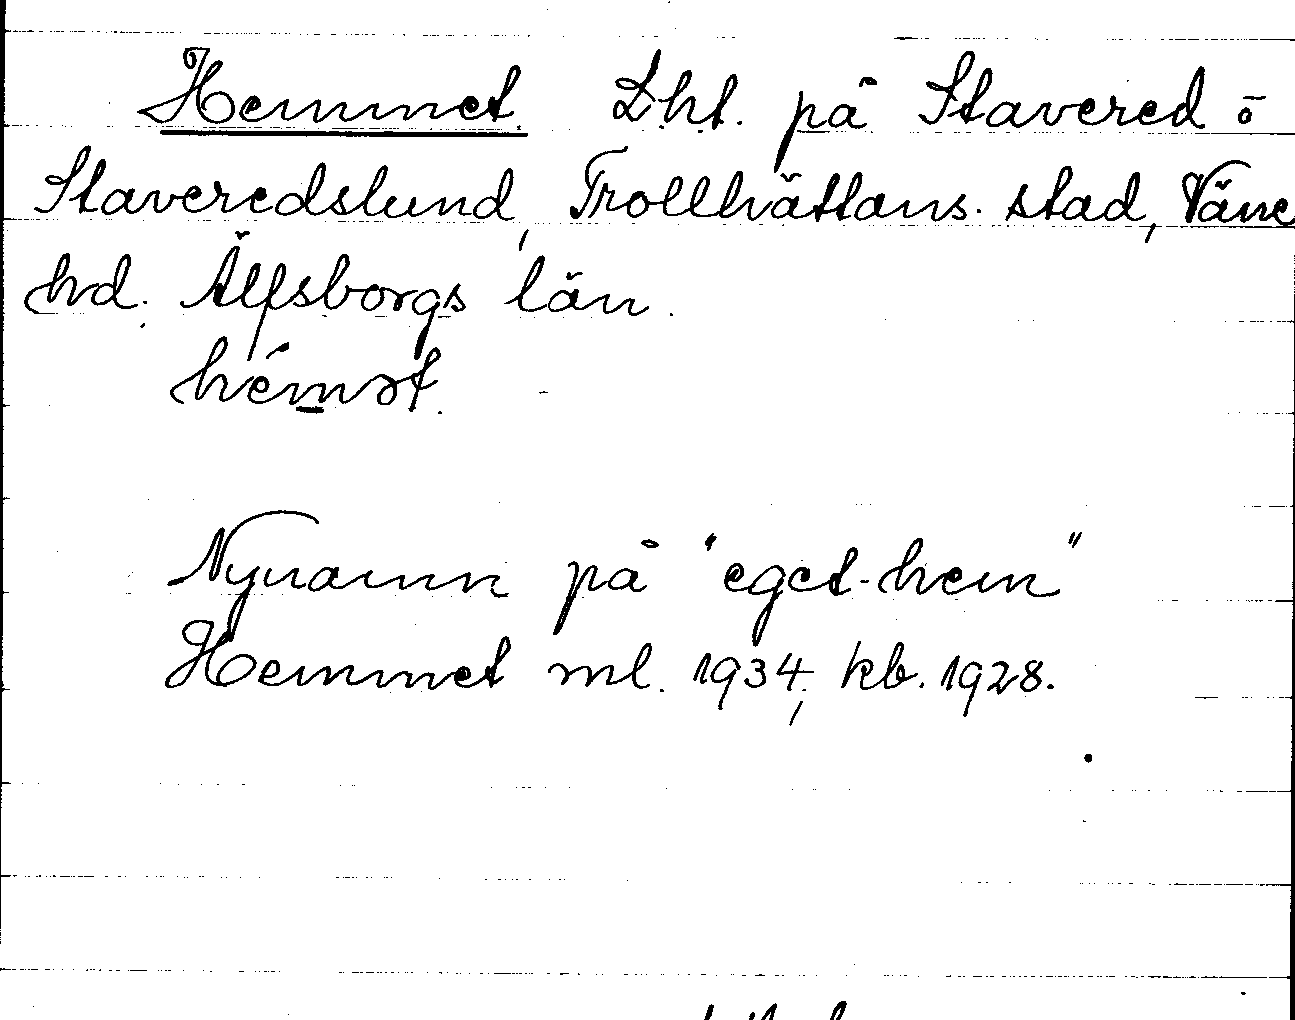 Hemmet. Lht. på Stavered o
Staveredslund, Trollhättans stad, Väne
hd. Älfsborgs län.
hémət.
Nynamn på "eget-hem"
Hemmet ml. 1934, kb. 1928.